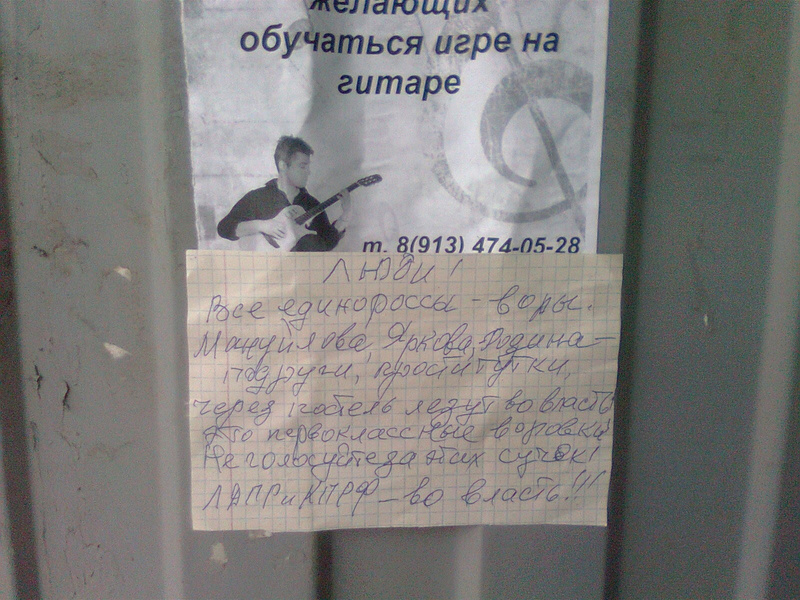 желающих
обучаться игре на
гитаре
т. 8(913) 474-05-28
ЛЮДИ!
Все единороссы - воры.
Мануйлова, Яркова, Юдина -
подруги, проститутки,
через постель лезут во власть
Это первоклассные воровки
Не голосуйте за этих сучек!
ЛДПР и КПРФ - во власть!!!